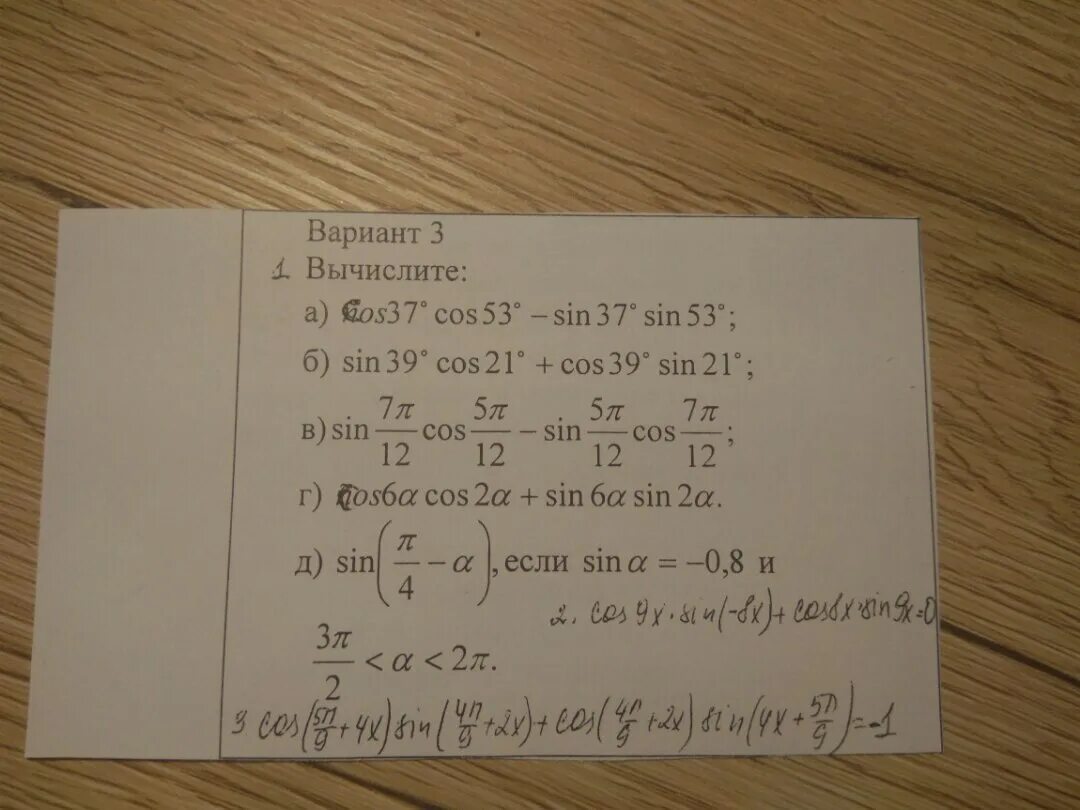 Вариант 3
1 Вычислите:
а) cos37° cos53° – sin37° sin53°;
б) sin39° cos21° + cos39° sin21°;
в) sin 7π/12 cos 5π/12 – sin 5π/12 cos 7π/12;
г) cos6α cos2α + sin6α sin2α.
д) sin(π/4 – α), если sin α = –0,8 и
2. cos9x·sin(-8x)+cos8x·sin9x=0
3π/2 < α < 2π.
3 cos(5π/9+4x)sin(4π/9+2x)+cos(4π/9+2x)sin(4x+5π/9)=-1